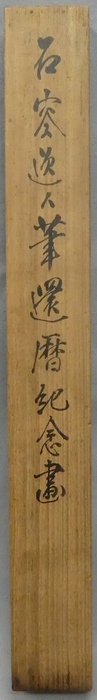 石窓逸人筆還暦紀念畫